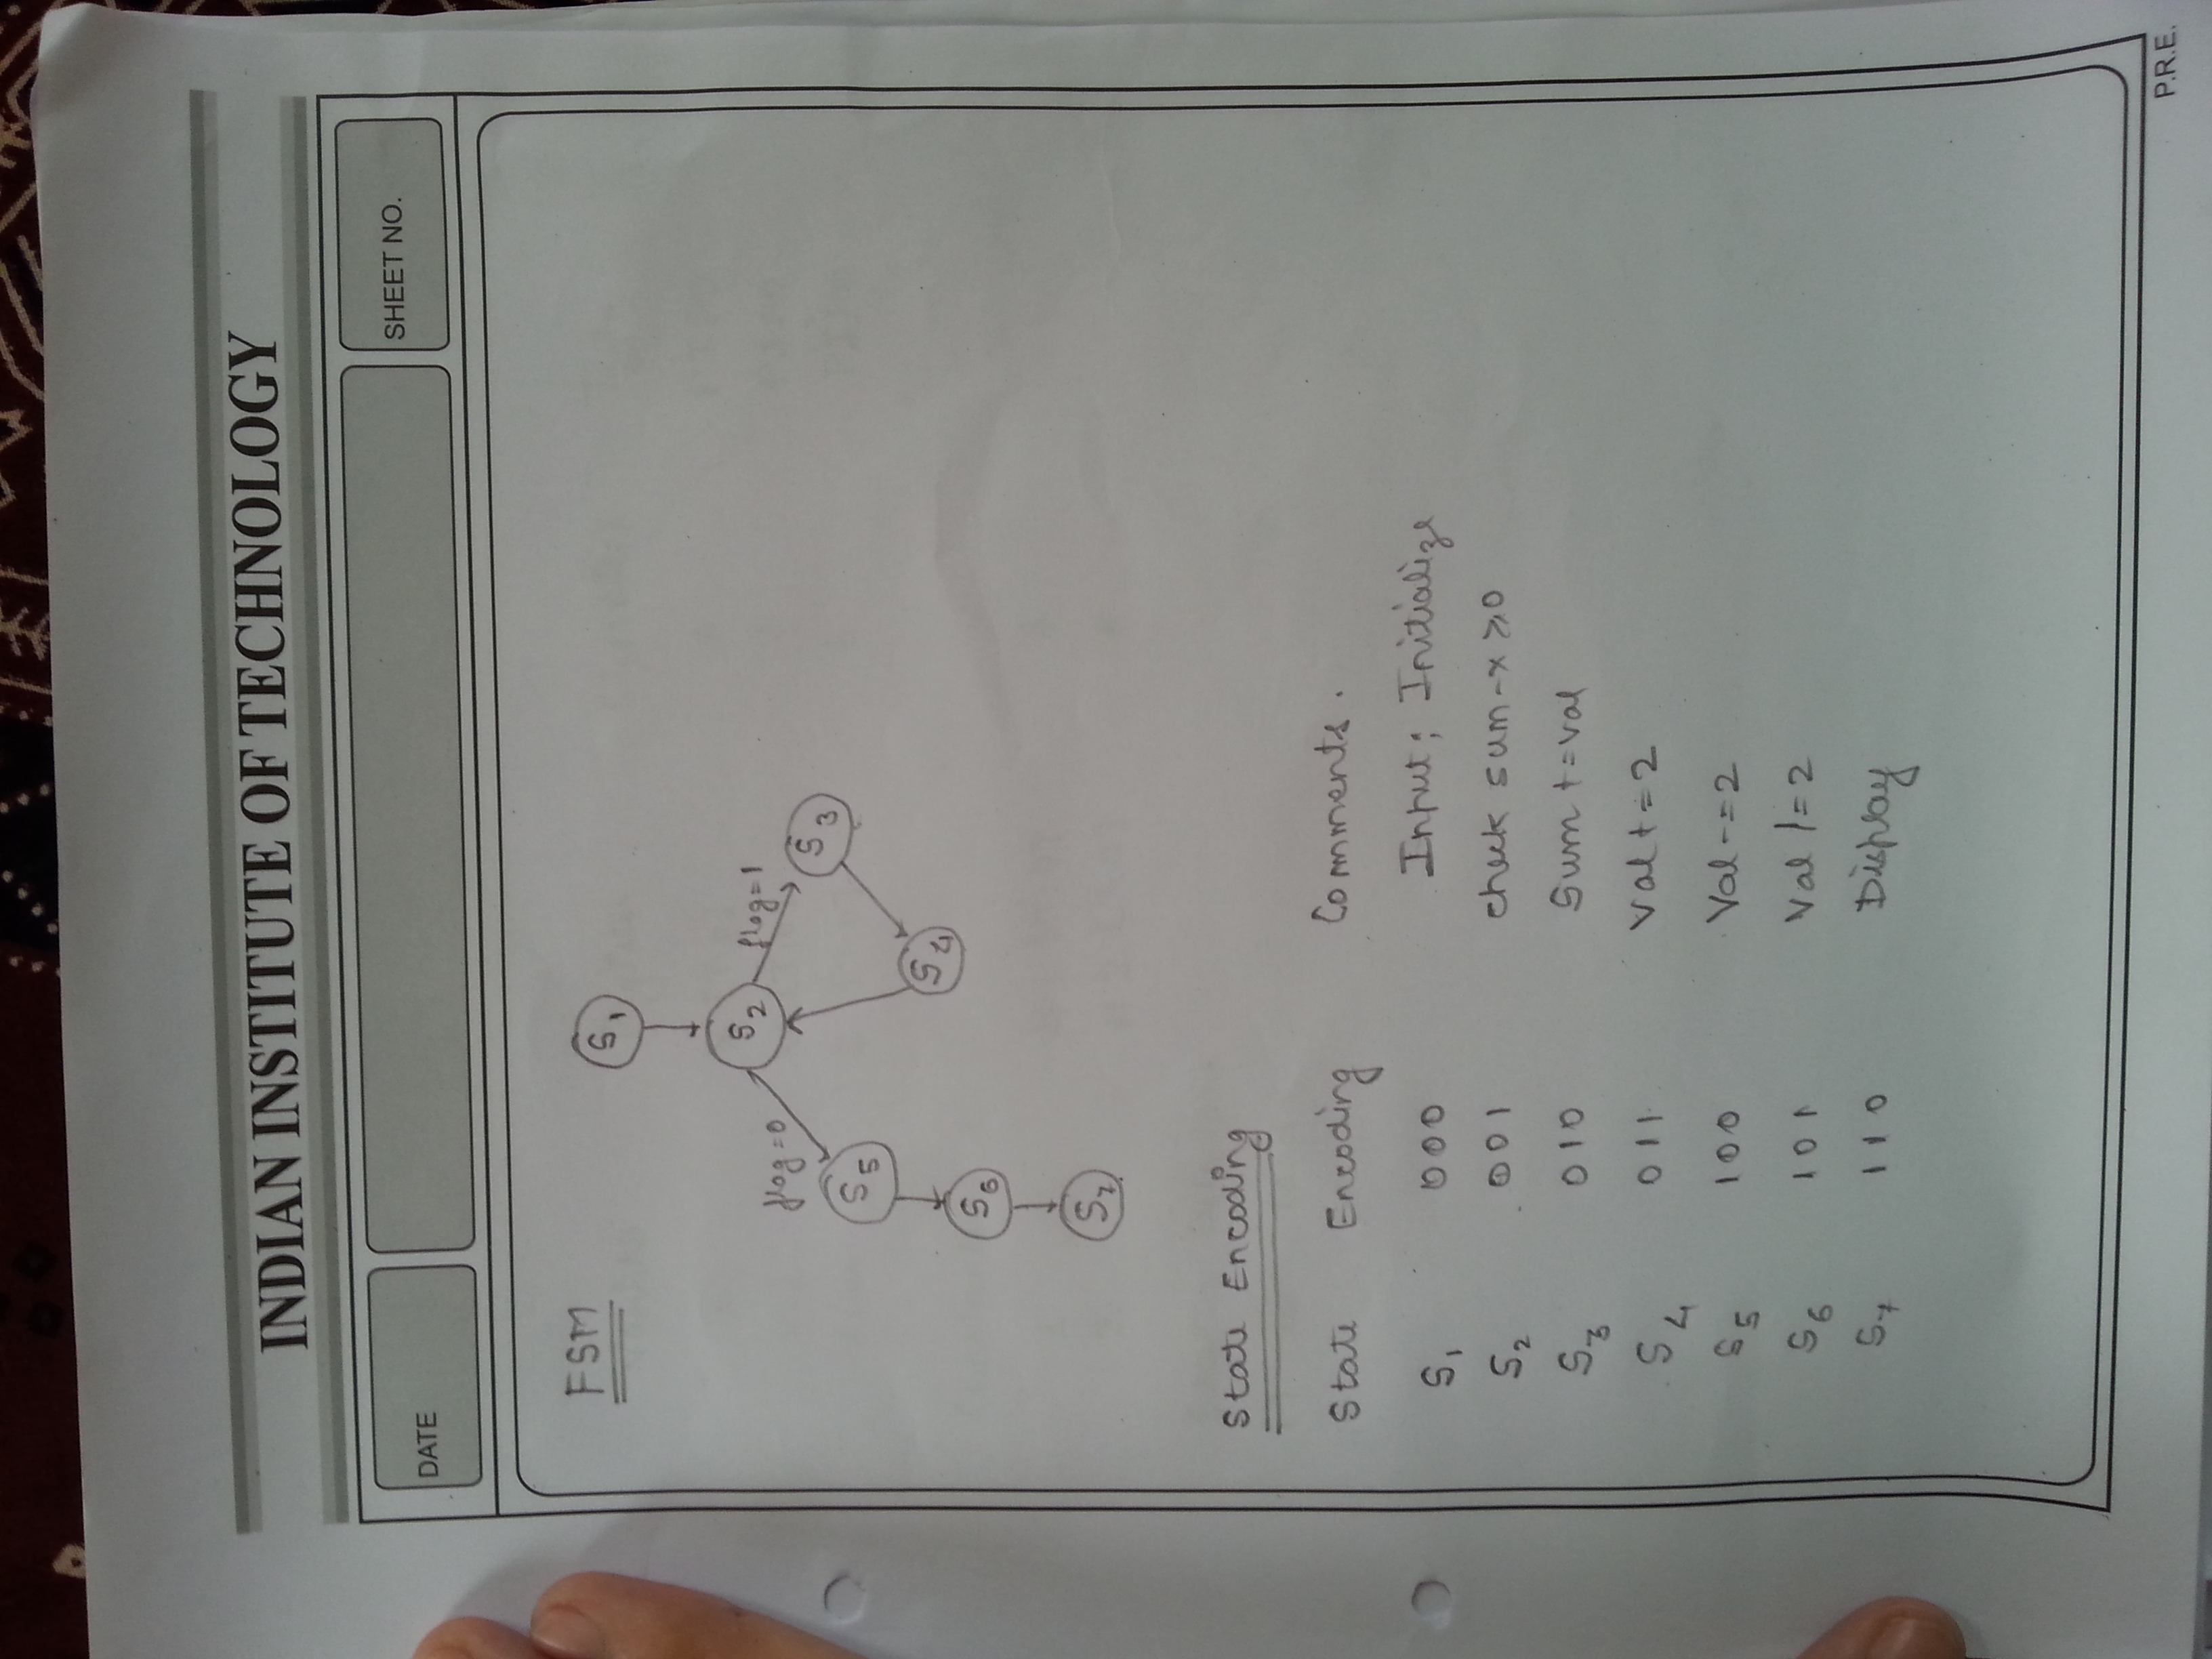 INDIAN INSTITUTE OF TECHNOLOGY
DATE
SHEET NO.
FSM
S1
S2
flag=0
flag=1
S3
S5
S4
S6
S7
State Encoding
State Encoding Comments.
S1 000 Input; Initialize
S2 001 check sum-x ≥0
S3 010 Sum +=val
S4 011 Val+=2
S5 100 Val-=2
S6 101 Val /=2
S7 110 Display
P.R.E.